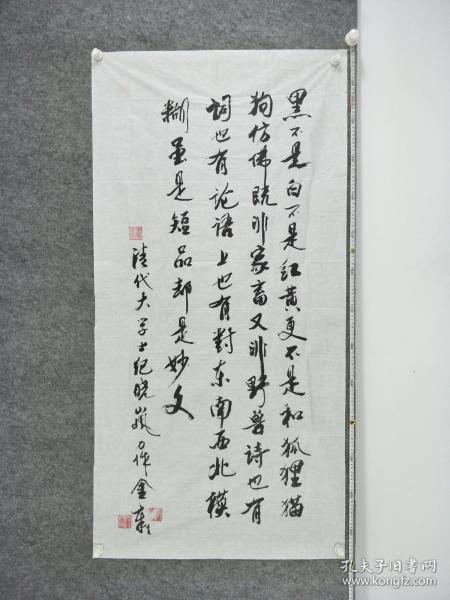 黑不是白不是红黄更不是和狐狸猫
狗仿佛既非家畜又非野兽诗也有
词也有论语上也有對东南西北模
糊虽是短品却是妙文
清代大学士纪晓岚力作金
孔夫子旧书网
www.kongfz.com